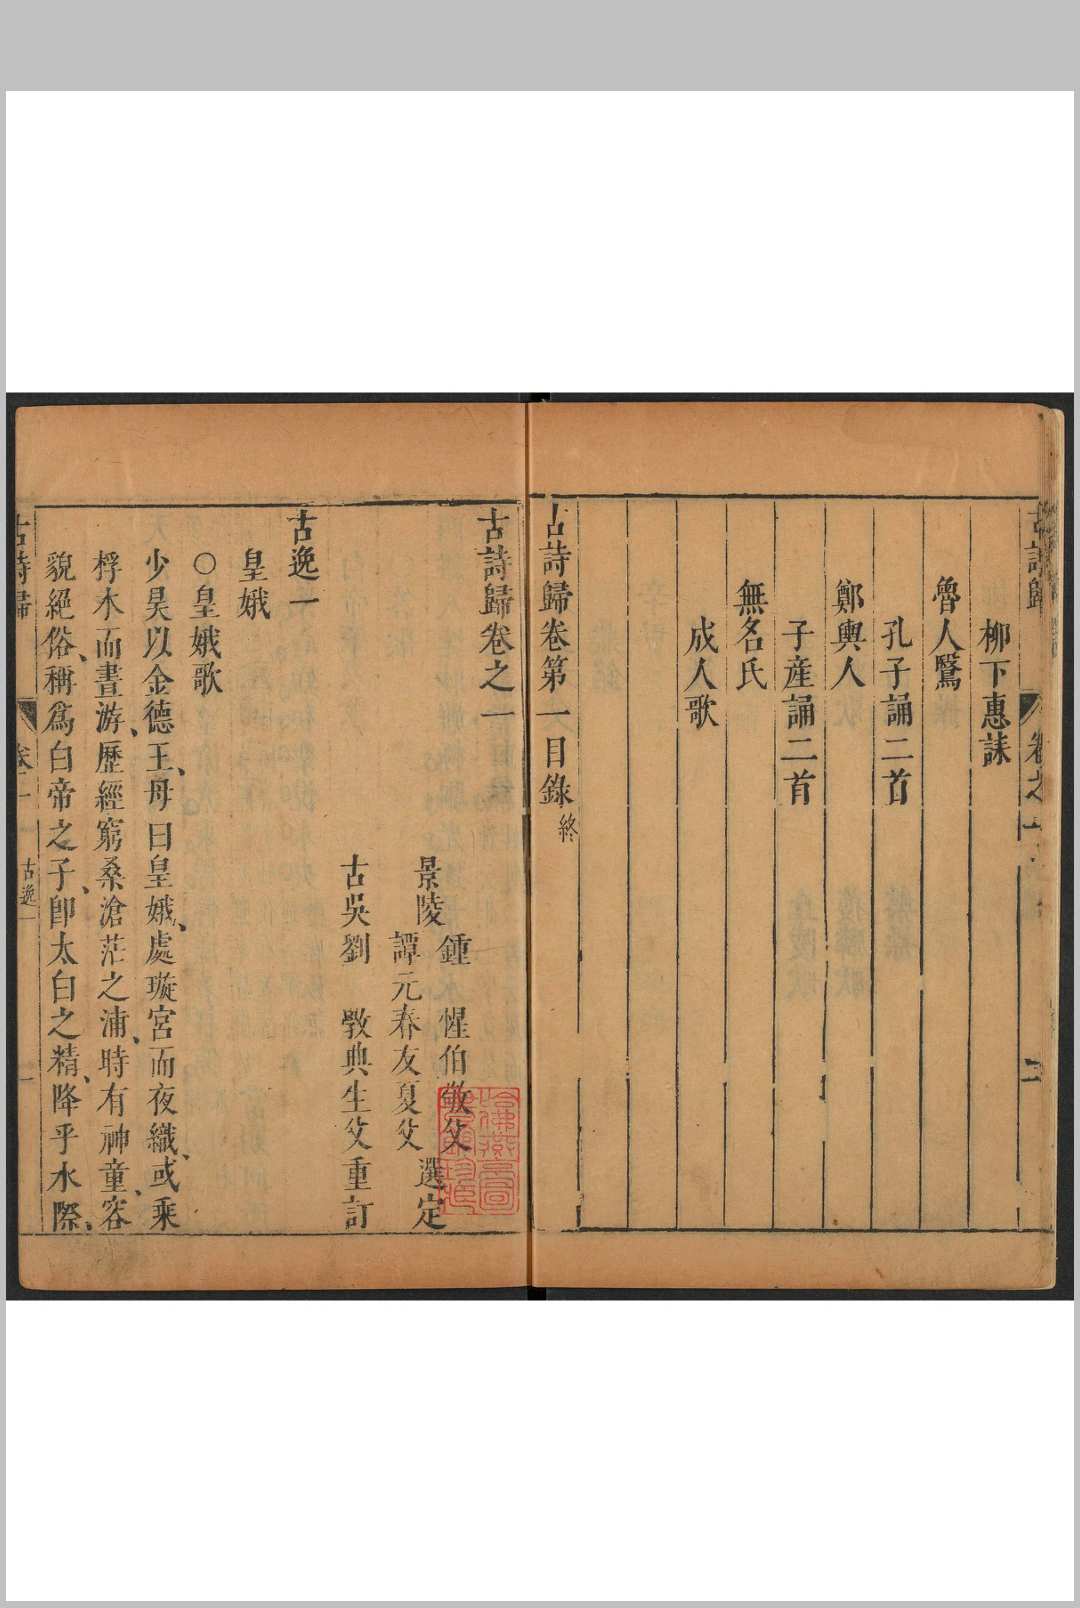 柳下惠誄
魯人鷖
孔子誦二首
鄭輿人
子産誦二首
無名氏
成人歌
古詩歸卷第一目錄終
古詩歸卷之一
景陵
鍾惺伯敬父
譚元春友夏父
選定
古吳劉斆典生父重訂
古逸一
皇娥
○皇娥歌
少昊以金德王、母曰皇娥、處璇宮而夜織、或乘
桴木而晝游、歷經窮桑滄茫之浦、時有神童、容
貌絕俗、稱爲白帝之子、卽太白之精、降乎水際、
古詩歸
卷之一
古逸一
一